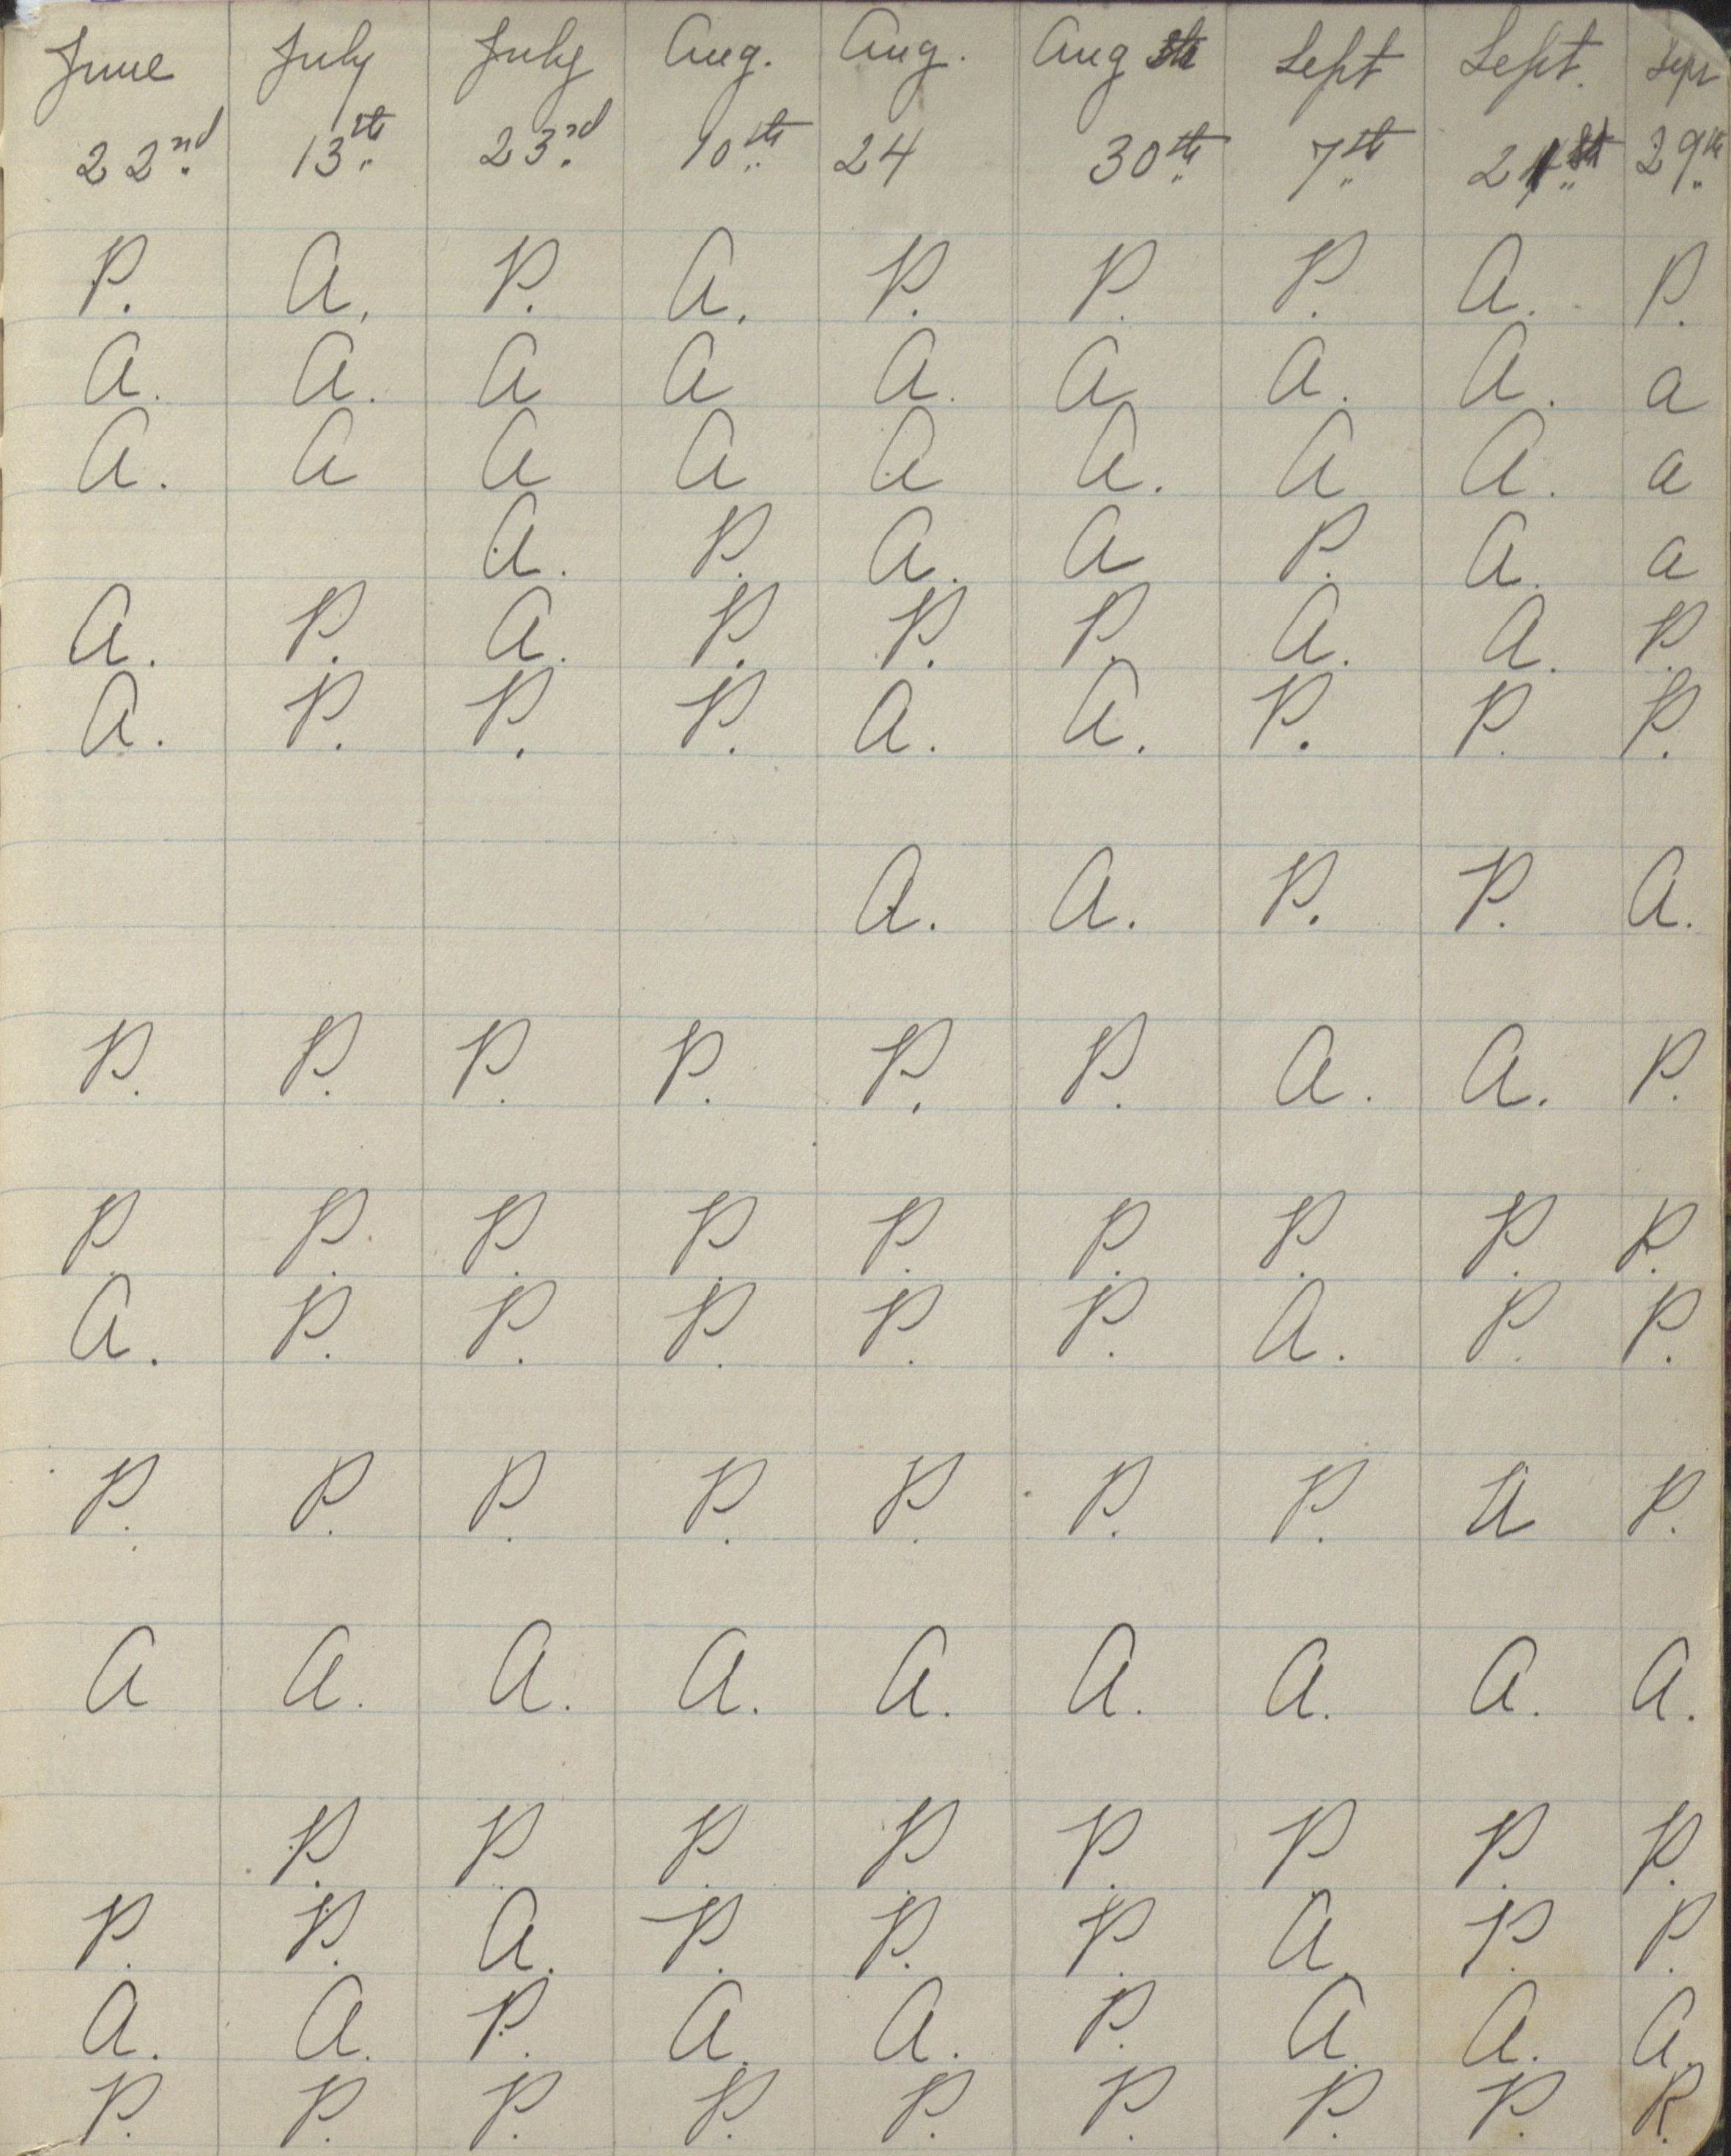 June July July Aug. Aug. Aug Sept Sept. Sept
22nd. 13th. 23rd. 10th. 24 30th. 7th. 21st. 29th.
P. A. P. A. P. P. P. A. P.
A. A. A A A. A A. A. a
A. A A A A A. A A. a
A. P. A. A P. A. a
A. P. A. P. P. P. A. A. P.
A. P. P. P. A. A. P. P. P.
A. A. P. P. A.
P. P. P. P. P. P. A. A. P.
P. P. P. P. P. P. P. P. P.
A. P. P. P. P. P. A. P. P.
P. P. P. P. P. P. P. A P.
A A. A. A. A. A. A. A. A.
P. P. P. P. P. P. P. P.
P. P. A. P. P. P. A. P. P.
A. A. P. A. A. P. A. A. A.
P. P. P. P. P. P. P. P. P.